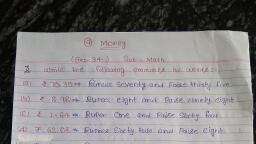 ④ Money
Sub - Math
I Write the following amounts in words:-
(a) ₹ 70.35 → Rupees Seventy and Paise thirty five
(b) ₹ 8.98 → Rupees eight and Paise ninety eight
(c) ₹ 1.64 → Rupees One and Paise Sixty four
(d) ₹ 62.08 → Rupees Sixty two and Paise eight